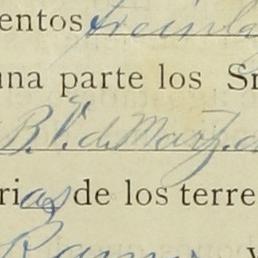 entos treinta
una parte los Sr
B. V. de Marz.
rias de los terre
Ramon